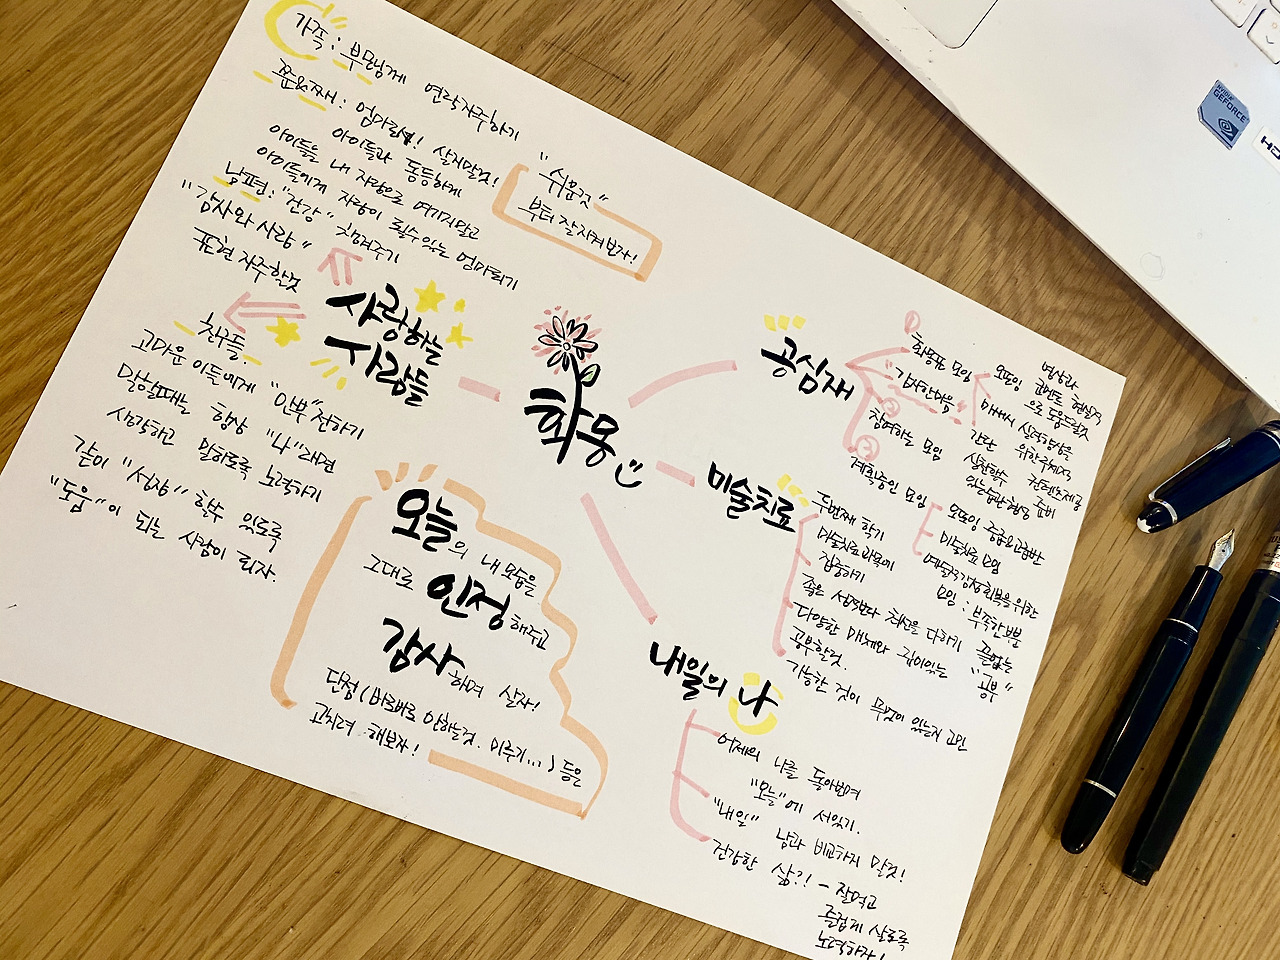 가족 : 부모님께 연락자주하기
쭌&째 : 엄마란! 살지말것!
아이들과 동등하게
아이들을 내 자랑으로 여기지말고
아이들에게 자랑이 될수있는 엄마되기
남편 : "건강" 챙겨주기
"감사와 사랑"
표현 자주할것
"쉬운것"
부터 잘 지켜보자!
사랑하는
사람들
친구들.
고마운 이들에게 "안부"전하기
말할때는 항상 "나"라면
생각하고 말하도록 노력하기
같이 "성장" 할수 있도록
"도움"이 되는 사람이 되자.
화몽
오늘의 내 모습을
그대로 인정해주고
감사하며 살자!
단점(바로바로 안하는것. 미루기...) 등은
고치려 해보자!
공심재
①
화용표 모임
"감사한마음"
②
참여하는 모임
③
계획중인 모임
오또잉
마쎄시
간단
실천할수
있는습관형성
영상과
코멘트 현실적
으로 도움드릴것
실력향상을
위한 주제와
컨텐츠제공
준비
오또잉 중급&고급반
미술치료 모임
예술로감성회복을 위한
모임 : 부족한부분
끝없는
"공부"
미술치료
두번째 학기
미술치료과목에
집중하기
좋은 성적보다 최선을 다하기
다양한 매체와 깊이있는
공부할것.
가능한 것이 무엇이 있는지 고민
내일의 나
어제의 나를 돌아보며
"오늘"에 서있기.
"내일" 남과 비교하지 말것!
건강한 삶?! - 잘먹고
즐겁게 살도록
노력하자!
NVIDIA
GEFORCE